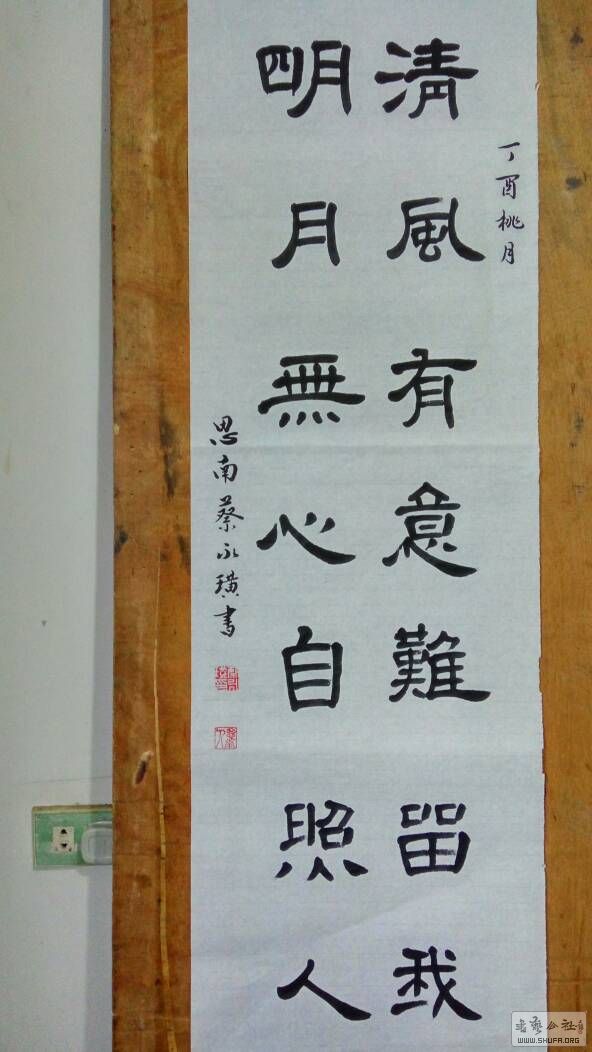 丁酉桃月
清風有意難留我
明月無心自照人
思南蔡永璜書
書藝公社
WWW.SHUFA.ORG